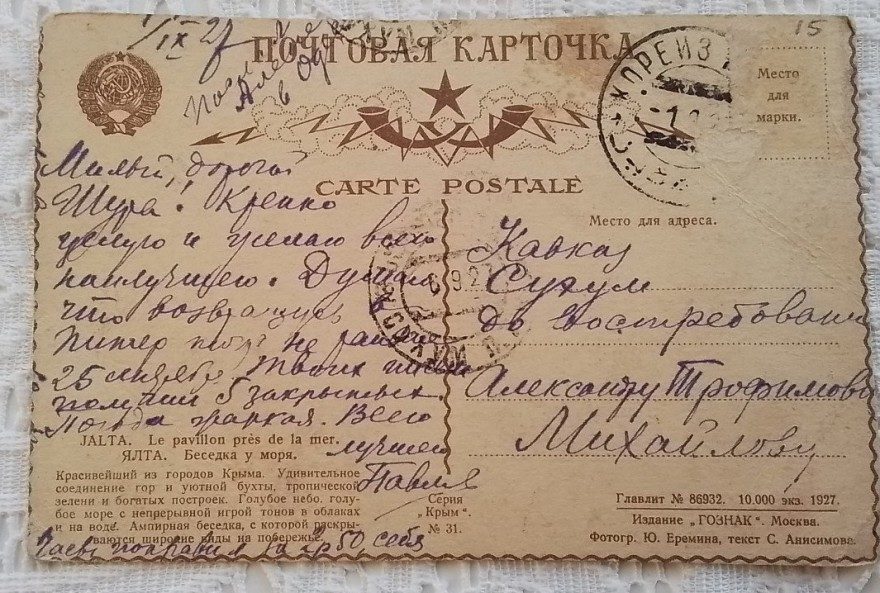 1/IX 27
в
ПОЧТОВАЯ КАРТОЧКА
15
КОРЕИЗ
Место
для
марки.
CARTE POSTALE
Милый, дорогой
Шура! Крепко
целую и желаю всего
наилучшего. Думаю
что возвращусь в
Питер не раньше
25 сентября. Твоих
получил 5 закрытых.
Погода жаркая. Всего
лучшего
Павля
JALTA. Le pavillon près de la mer.
ЯЛТА. Беседка у моря.
Красивейший из городов Крыма. Удивительное
соединение гор и уютной бухты, тропической
зелени и богатых построек. Голубое небо. голу-
бое море с непрерывной игрой тонов в облаках
и на воде. Ампирная беседка, с которой раскры-
ваются широкие виды на побережье.
50, себя
Серия
„Крым".
№ 31.
Место для адреса.
Кавказ
Сухум
до востребования
Александру Трофимовичу
Михайлову
Главлит № 86932. 10.000 экз. 1927.
Издание „ГОЗНАК". Москва.
Фотогр. Ю. Еремина, текст С. Анисимова.